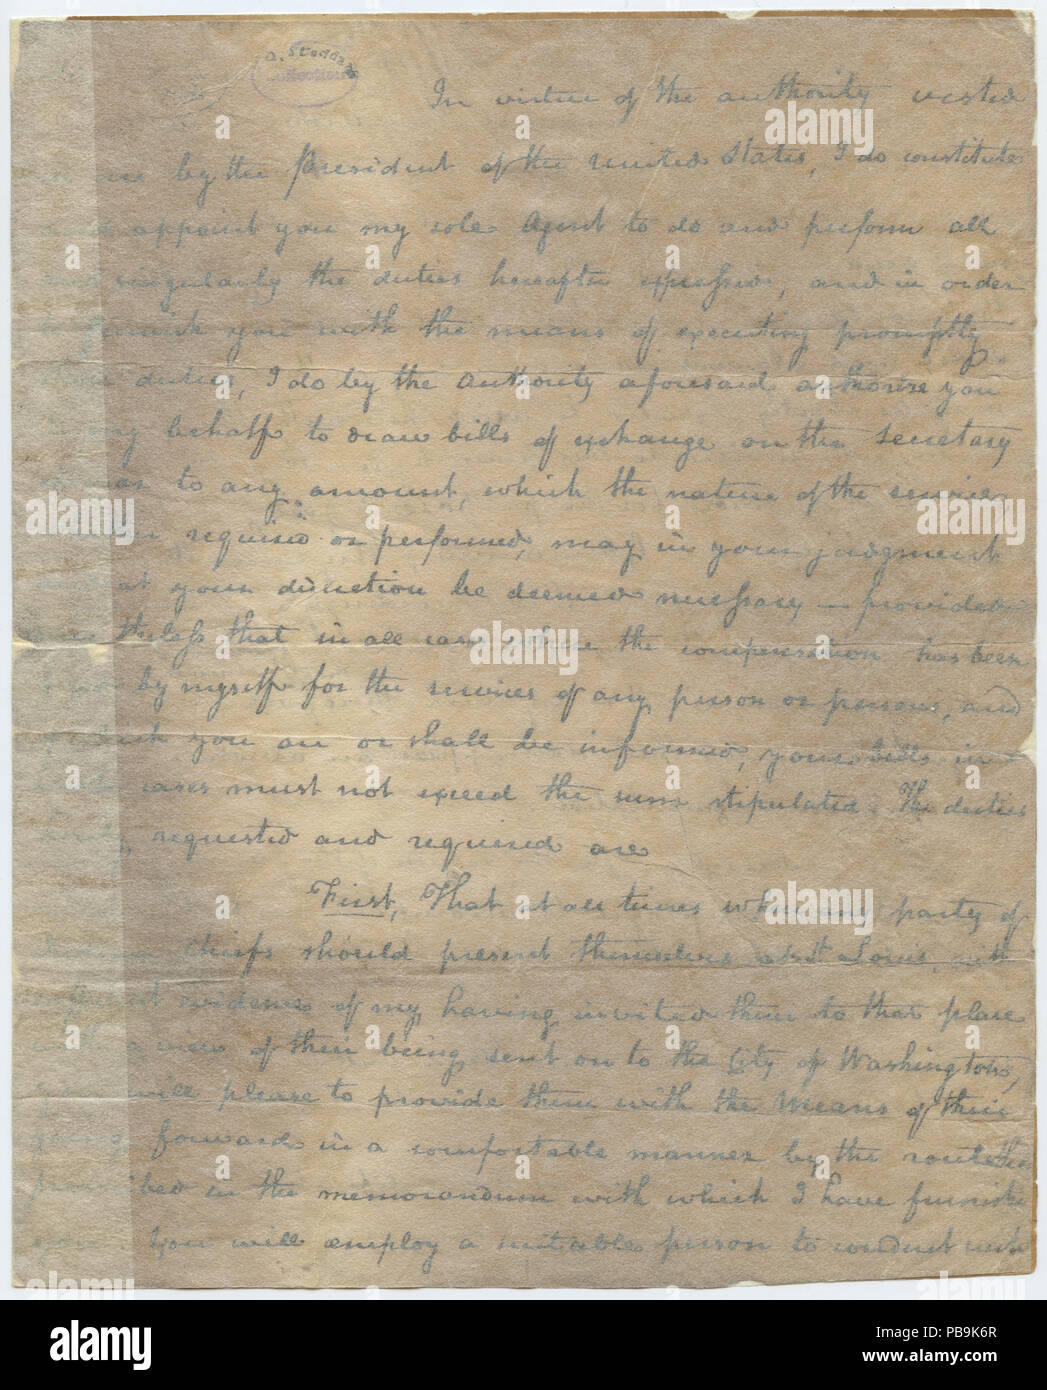 A. Stoddard
Collection
In virtue of the authority vested
me by the President of the United States, I do constitute
appoint you my sole Agent to do and perform all
singularly the duties hereafter expressed, and in order
you with the means of executing promptly
duties, I do by the authority aforesaid authorize you
my behalf to draw bills of exchange on the Secretary
War to any amount, which the nature of the service
required or performed, may in your judgment
at your discretion be deemed necessary — provided
that in all cases where the compensation has been
by myself for the services of any person or persons, and
you are or shall be informed, your bills in
cases must not exceed the sum stipulated. The duties
requested and required are
First, That at all times when any party of
chiefs should present themselves at St Louis, with
evidence of my having invited them to that place
with a view of their being sent on to the City of Washington,
will please to provide them with the means of their
going forward in a comfortable manner by the route
in the memorandum with which I have furnished
you. You will employ a suitable person to conduct such
alamy
alamy
Image ID: PB9K6R
www.alamy.com